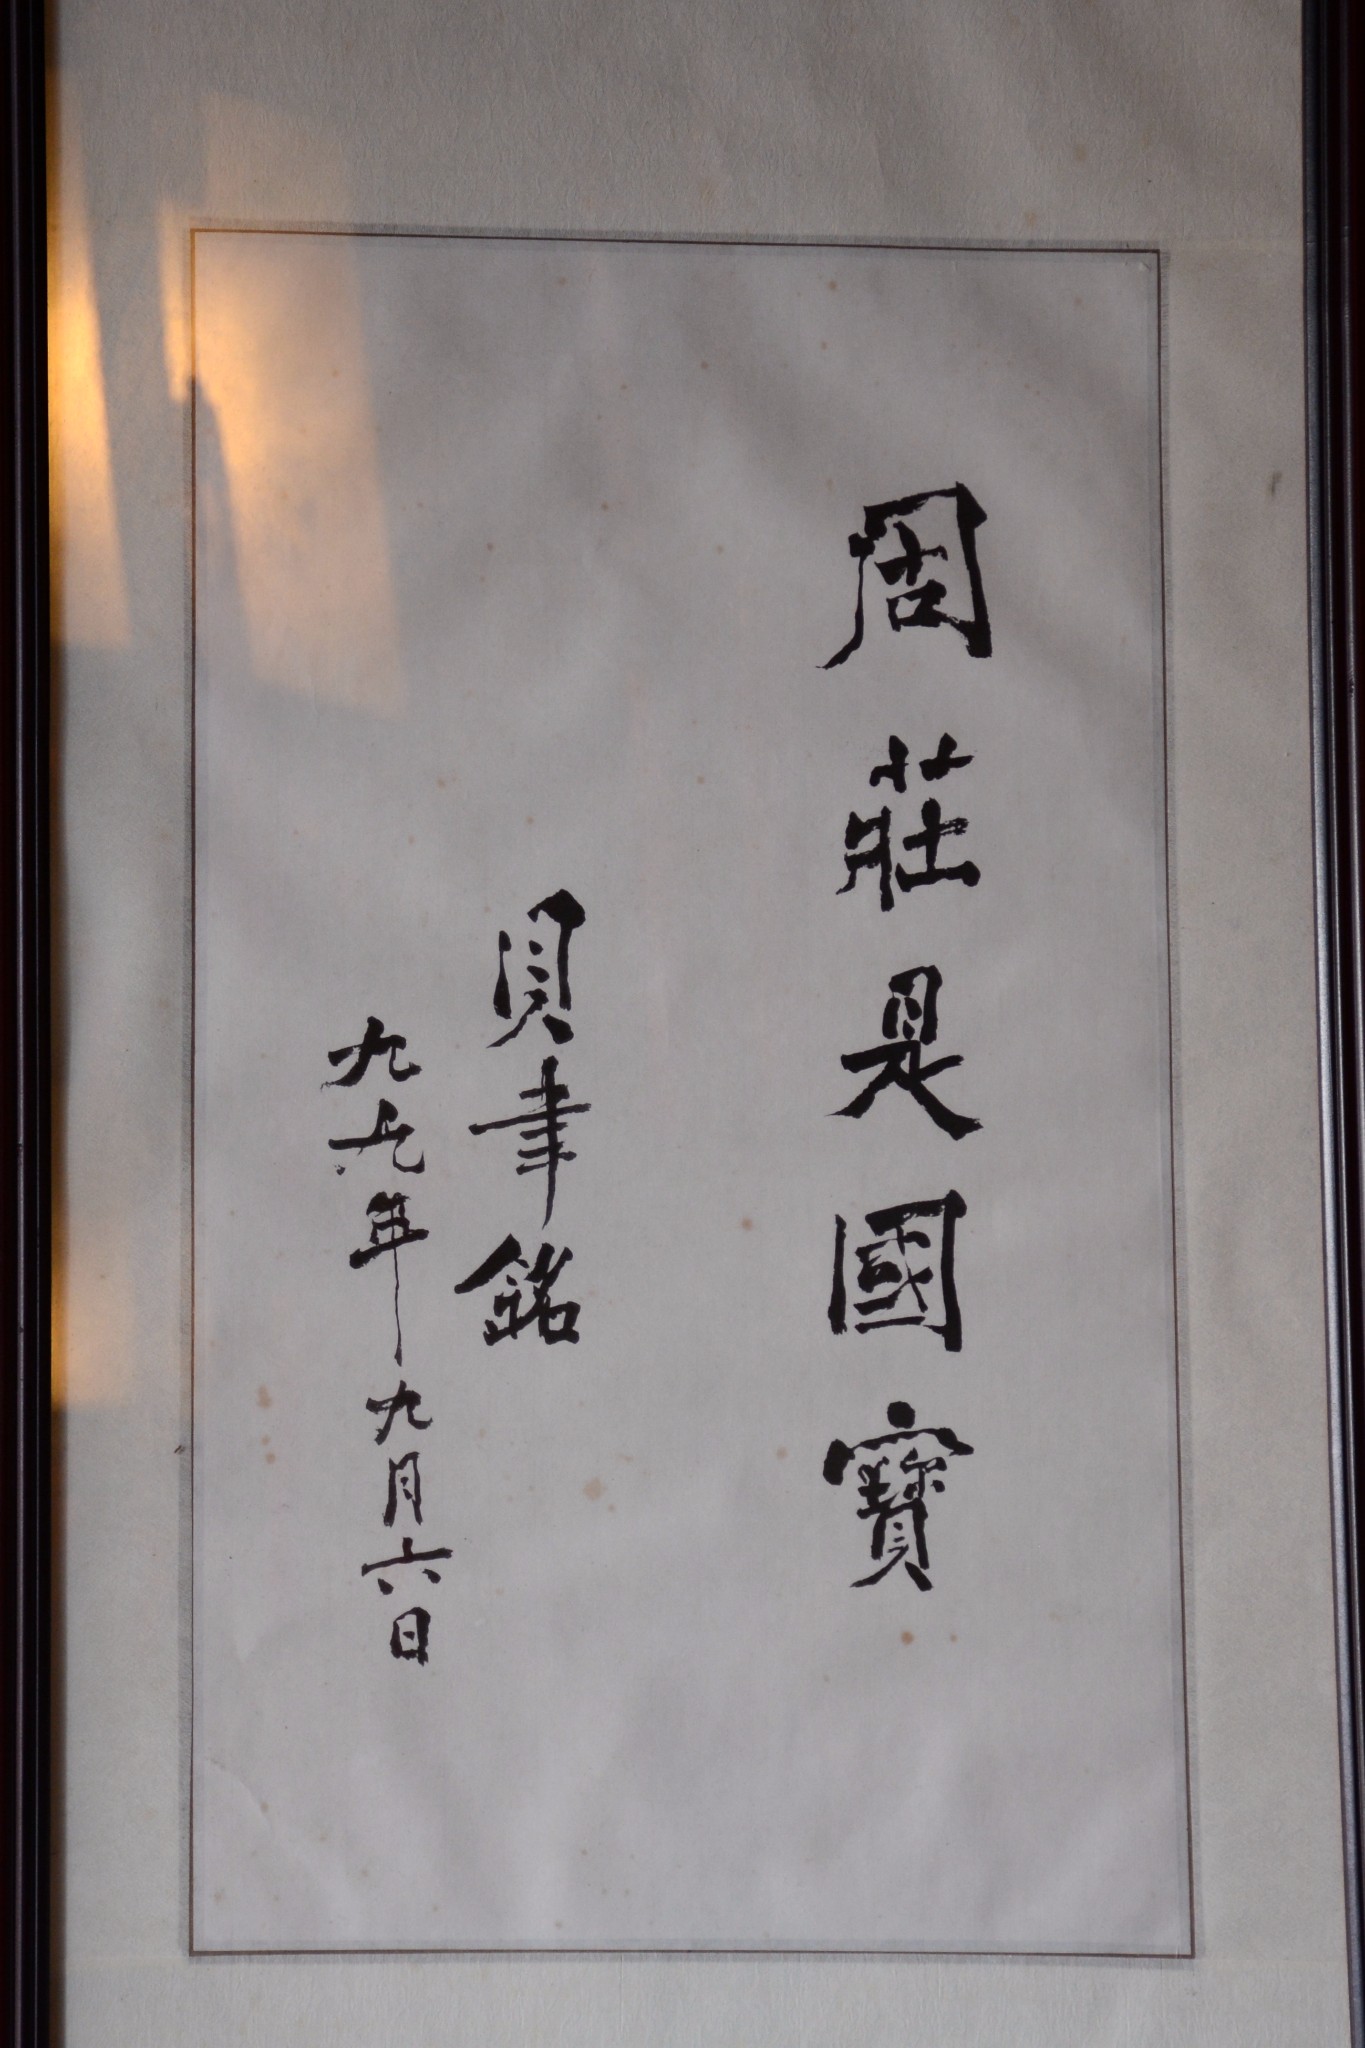 周莊是國寶
貝聿銘
九六年九月六日